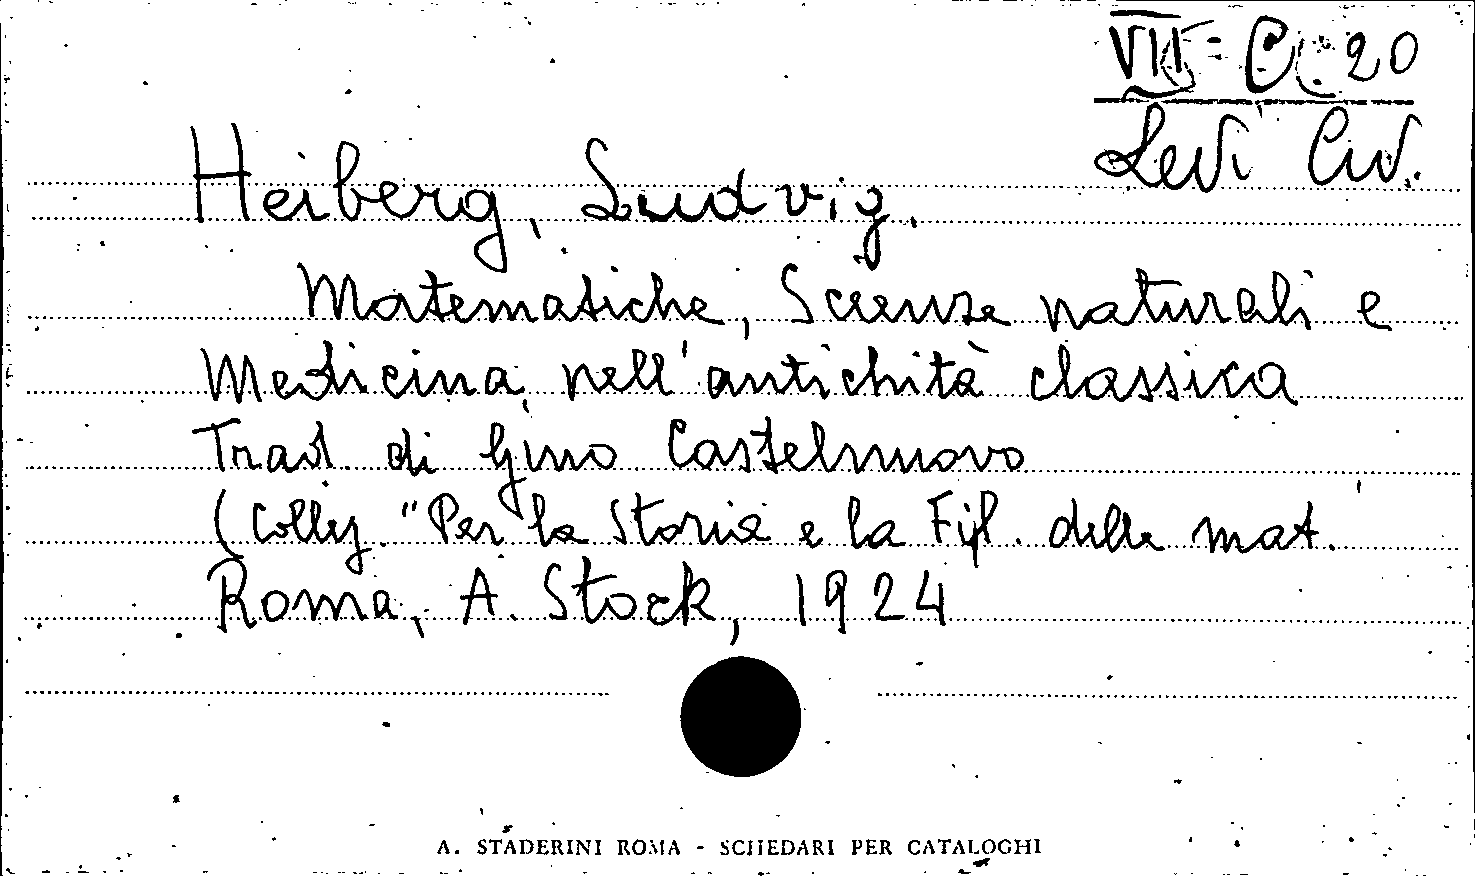 VII = C 20
Levi Civ.
Heiberg, Ludvig.
Matematiche, Scienze naturali e
Medicina, nell'antichità classica
Trad. di Gino Castelnuovo
(Collez. "Per la Storia e la Fil. delle mat.
Roma, A. Stock, 1924
A. STADERINI ROMA - SCHEDARI PER CATALOGHI